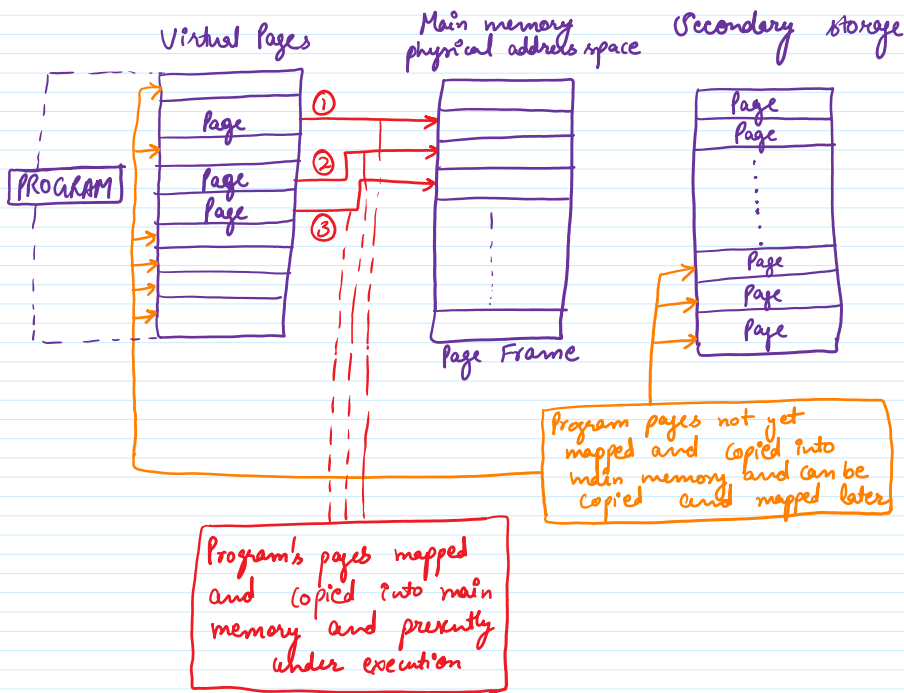 Virtual Pages
Main memory
physical address space
Secondary storage
PROGRAM
Page
Page
Page
①
②
③
Page Frame
Page
Page
Page
Page
Page
Program pages not yet
mapped and copied into
main memory and can be
copied and mapped later
Program's pages mapped
and copied into main
memory and presently
under execution